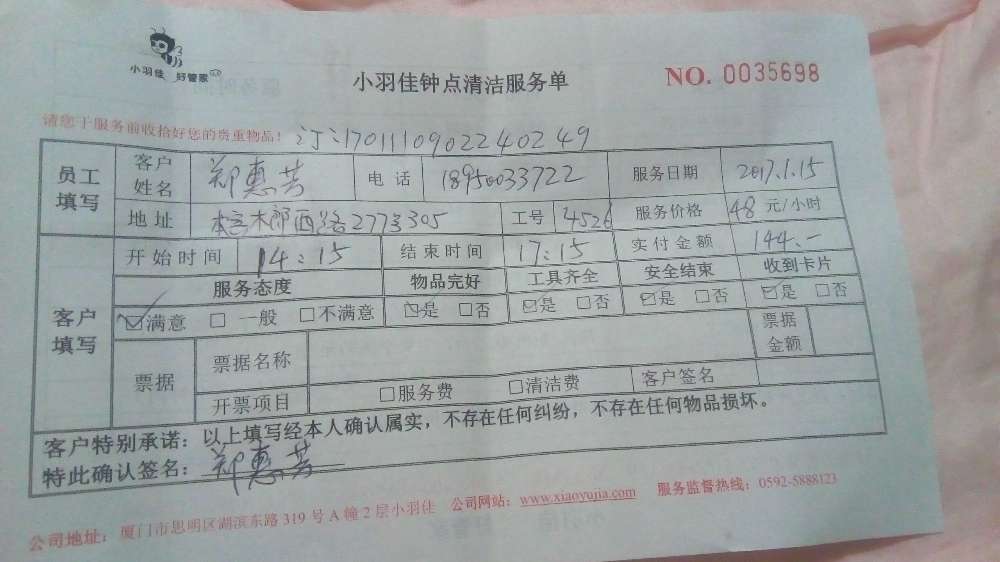 小羽佳 好管家
小羽佳钟点清洁服务单
NO. 0035698
请您于服务前收拾好您的贵重物品！
订:17011109022402 49
员工填写 客户姓名 郑惠芳 电话 18950033722 服务日期 2017.1.15
地址 277 305 工号 4526 服务价格 48 元/小时
客户填写 开始时间 14:15 结束时间 17:15 实付金额 144.-
服务态度 物品完好 工具齐全 安全结束 收到卡片
☑满意 □一般 □不满意 ☑是 □否 ☑是 □否 ☑是 □否 ☑是 □否
票据 票据名称 票据金额
开票项目 □服务费 □清洁费 客户签名
客户特别承诺：以上填写经本人确认属实，不存在任何纠纷，不存在任何物品损坏。
特此确认签名：郑惠芳
公司地址：厦门市思明区湖滨东路 319 号 A 幢 2 层小羽佳 公司网站：www.xiaoyujia.com 服务监督热线：0592-5888123